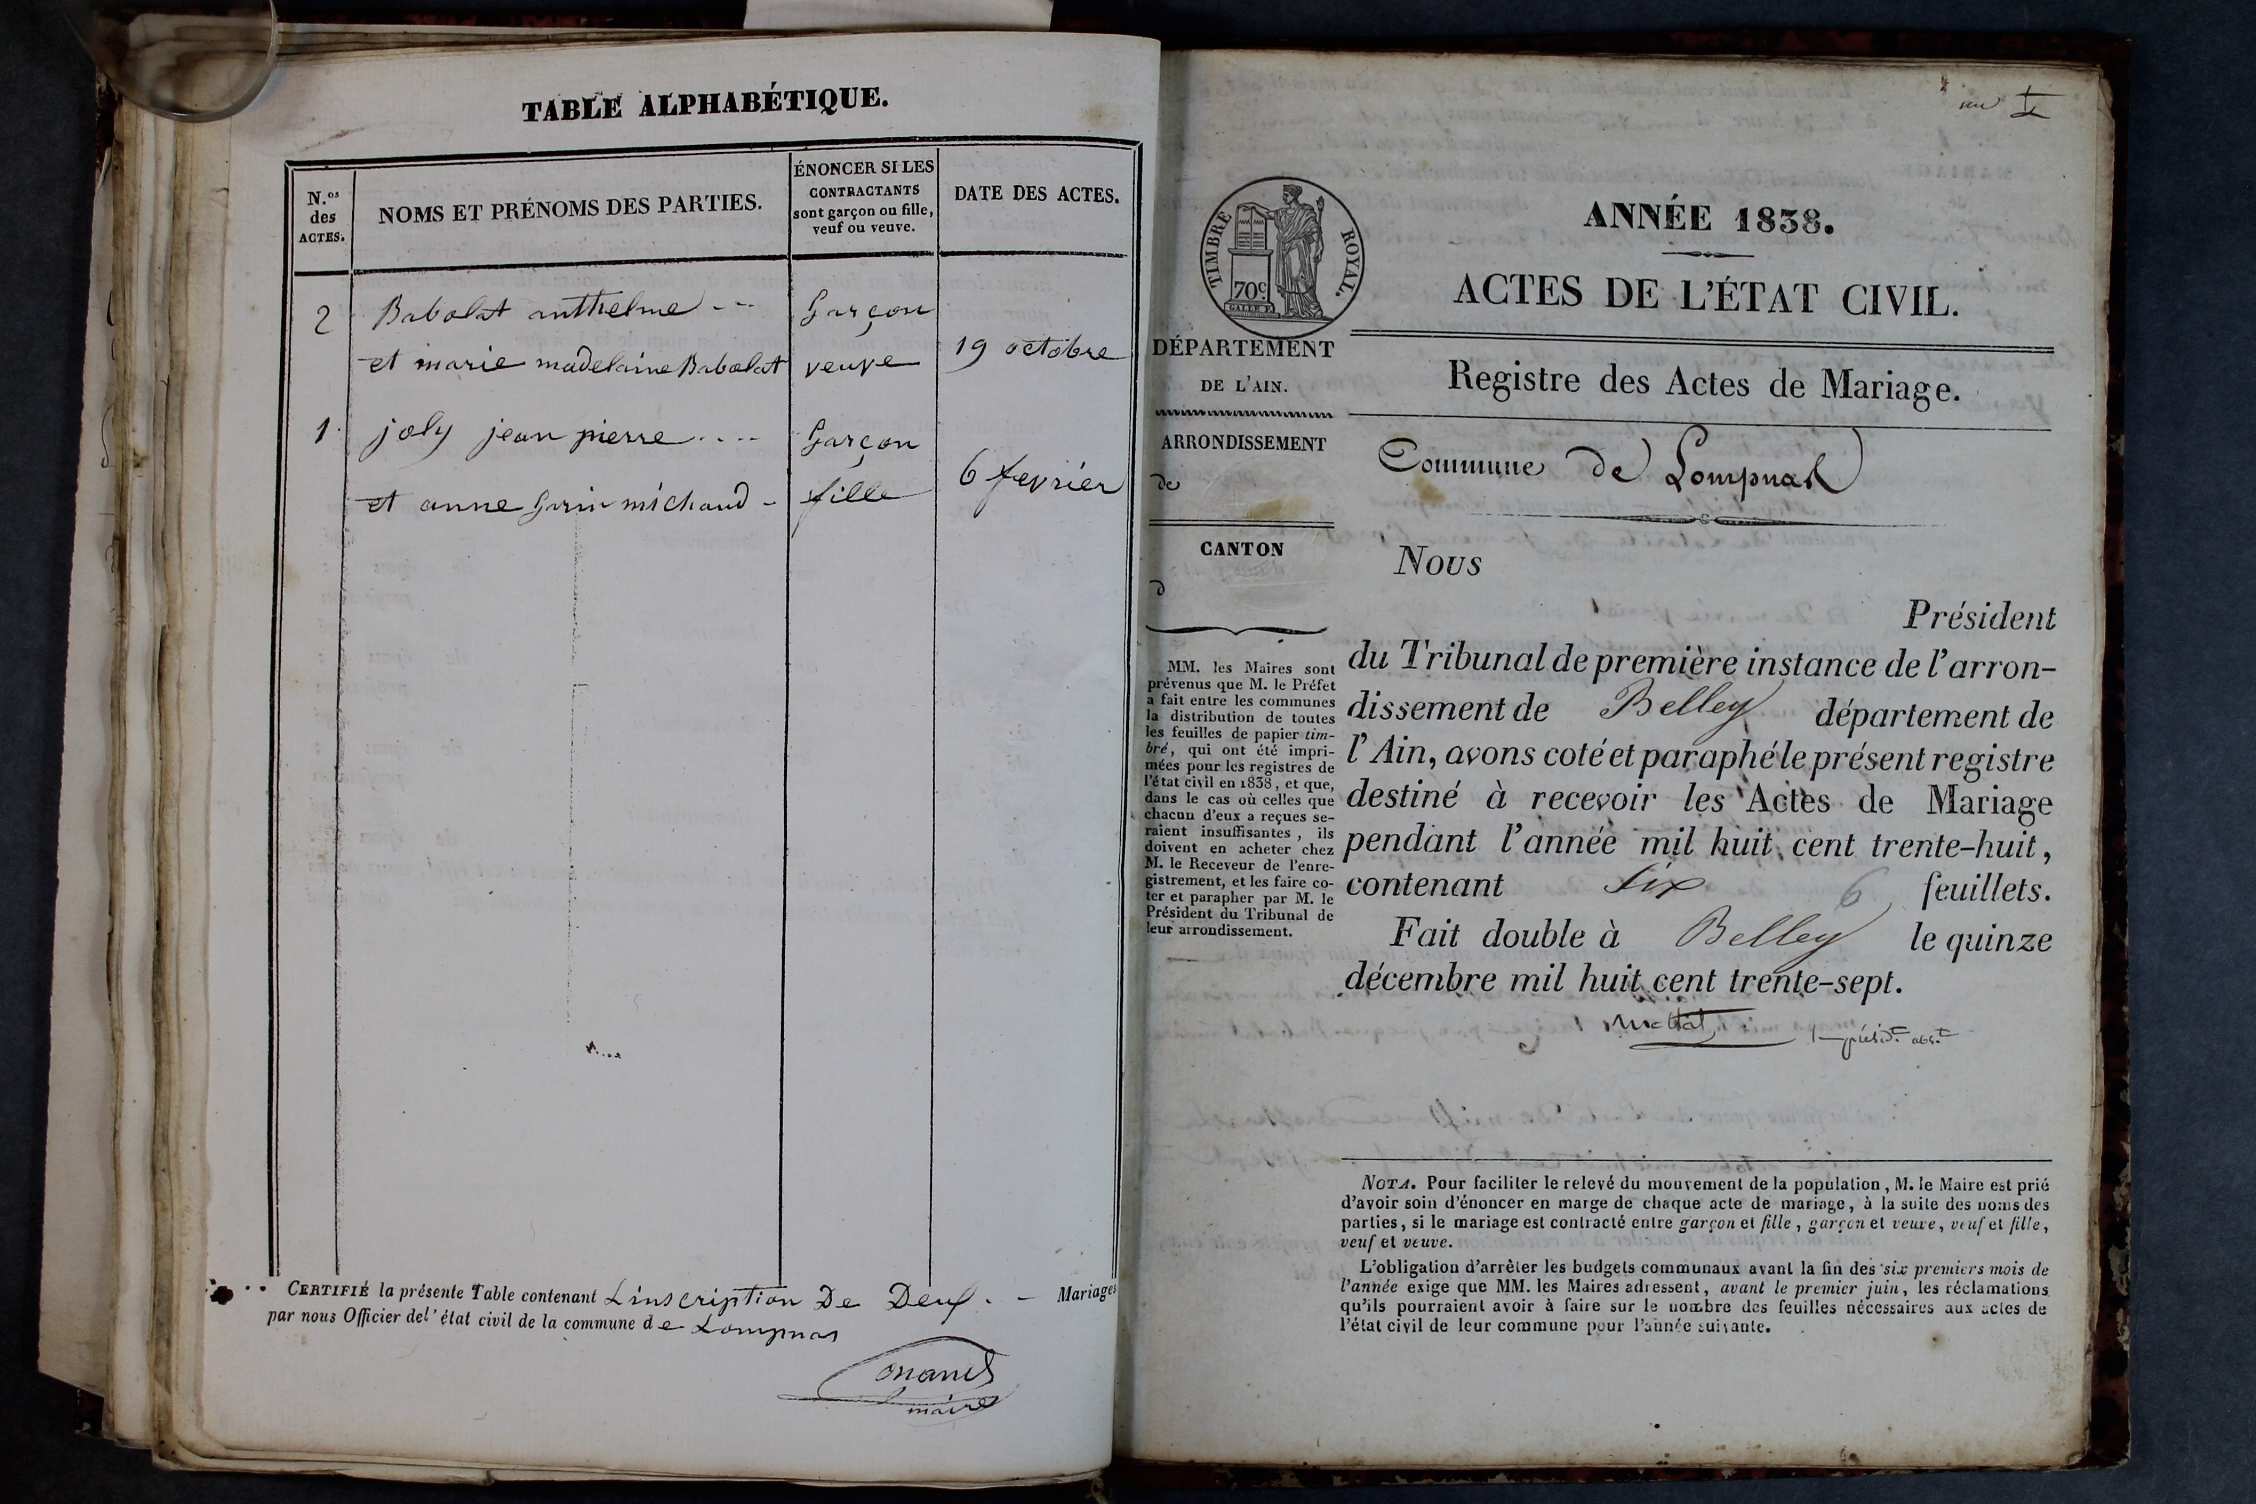 TABLE ALPHABÉTIQUE.
N.os des ACTES.
NOMS ET PRÉNOMS DES PARTIES.
ÉNONCER SI LES
CONTRACTANTS
sont garçon ou fille,
veuf ou veuve.
DATE DES ACTES.
2 Babolat anthelme Garçon
et marie madelaine Babolat veuve 19 octobre
1 joly jean pierre Garçon
et anne Garin michaud fille 6 fevrier
CERTIFIÉ la présente Table contenant L'inscription De Deux Mariages
par nous Officier del' état civil de la commune de Lompnas
maire
un 1
TIMBRE ROYAL.
70c
ANNÉE 1838.
ACTES DE L'ÉTAT CIVIL.
Registre des Actes de Mariage.
Commune de Lompnas
DÉPARTEMENT
DE L'AIN.
ARRONDISSEMENT
de
CANTON
d
MM. les Maires sont
prévenus que M. le Préfet
a fait entre les communes
la distribution de toutes
les feuilles de papier tim-
bré, qui ont été impri-
mées pour les registres de
l'état civil en 1838, et que,
dans le cas où celles que
chacun d'eux a reçues se-
raient insuffisantes, ils
doivent en acheter chez
M. le Receveur de l'enre-
gistrement, et les faire co-
ter et parapher par M. le
Président du Tribunal de
leur arrondissement.
Nous
Président
du Tribunal de première instance de l'arron-
dissement de Belley département de
l'Ain, avons coté et paraphé le présent registre
destiné à recevoir les Actes de Mariage
pendant l'année mil huit cent trente-huit,
contenant six 6 feuillets.
Fait double à Belley le quinze
décembre mil huit cent trente-sept.
NOTA. Pour faciliter le relevé du mouvement de la population, M. le Maire est prié
d'avoir soin d'énoncer en marge de chaque acte de mariage, à la suite des noms des
parties, si le mariage est contracté entre garçon et fille, garçon et veuve, veuf et fille,
veuf et veuve.
L'obligation d'arrêter les budgets communaux avant la fin des six premiers mois de
l'année exige que MM. les Maires adressent, avant le premier juin, les réclamations
qu'ils pourraient avoir à faire sur le nombre des feuilles nécessaires aux actes de
l'état civil de leur commune pour l'année suivante.